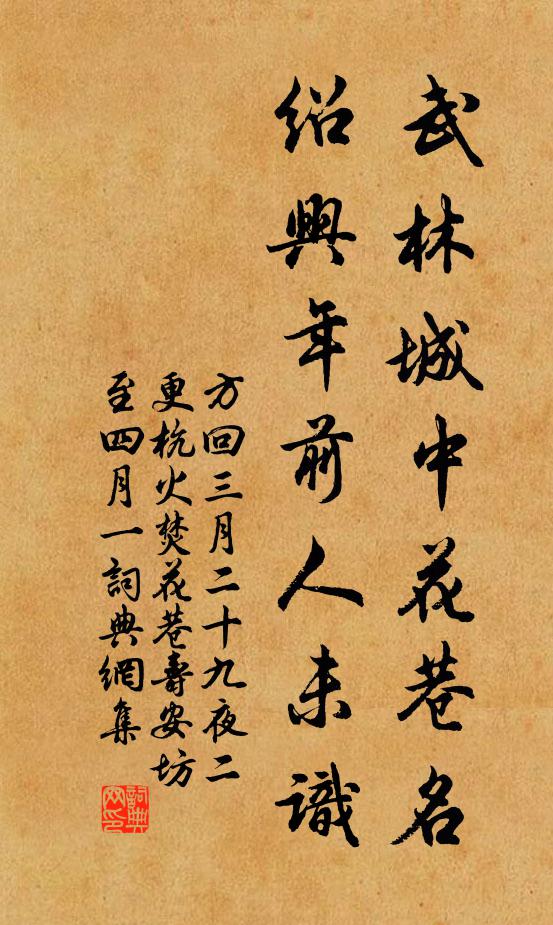 武林城中花巷名
紹興年前人未識
方回三月二十九夜二
更杭火焚花巷壽安坊
至四月一詞典網集
詞典網印